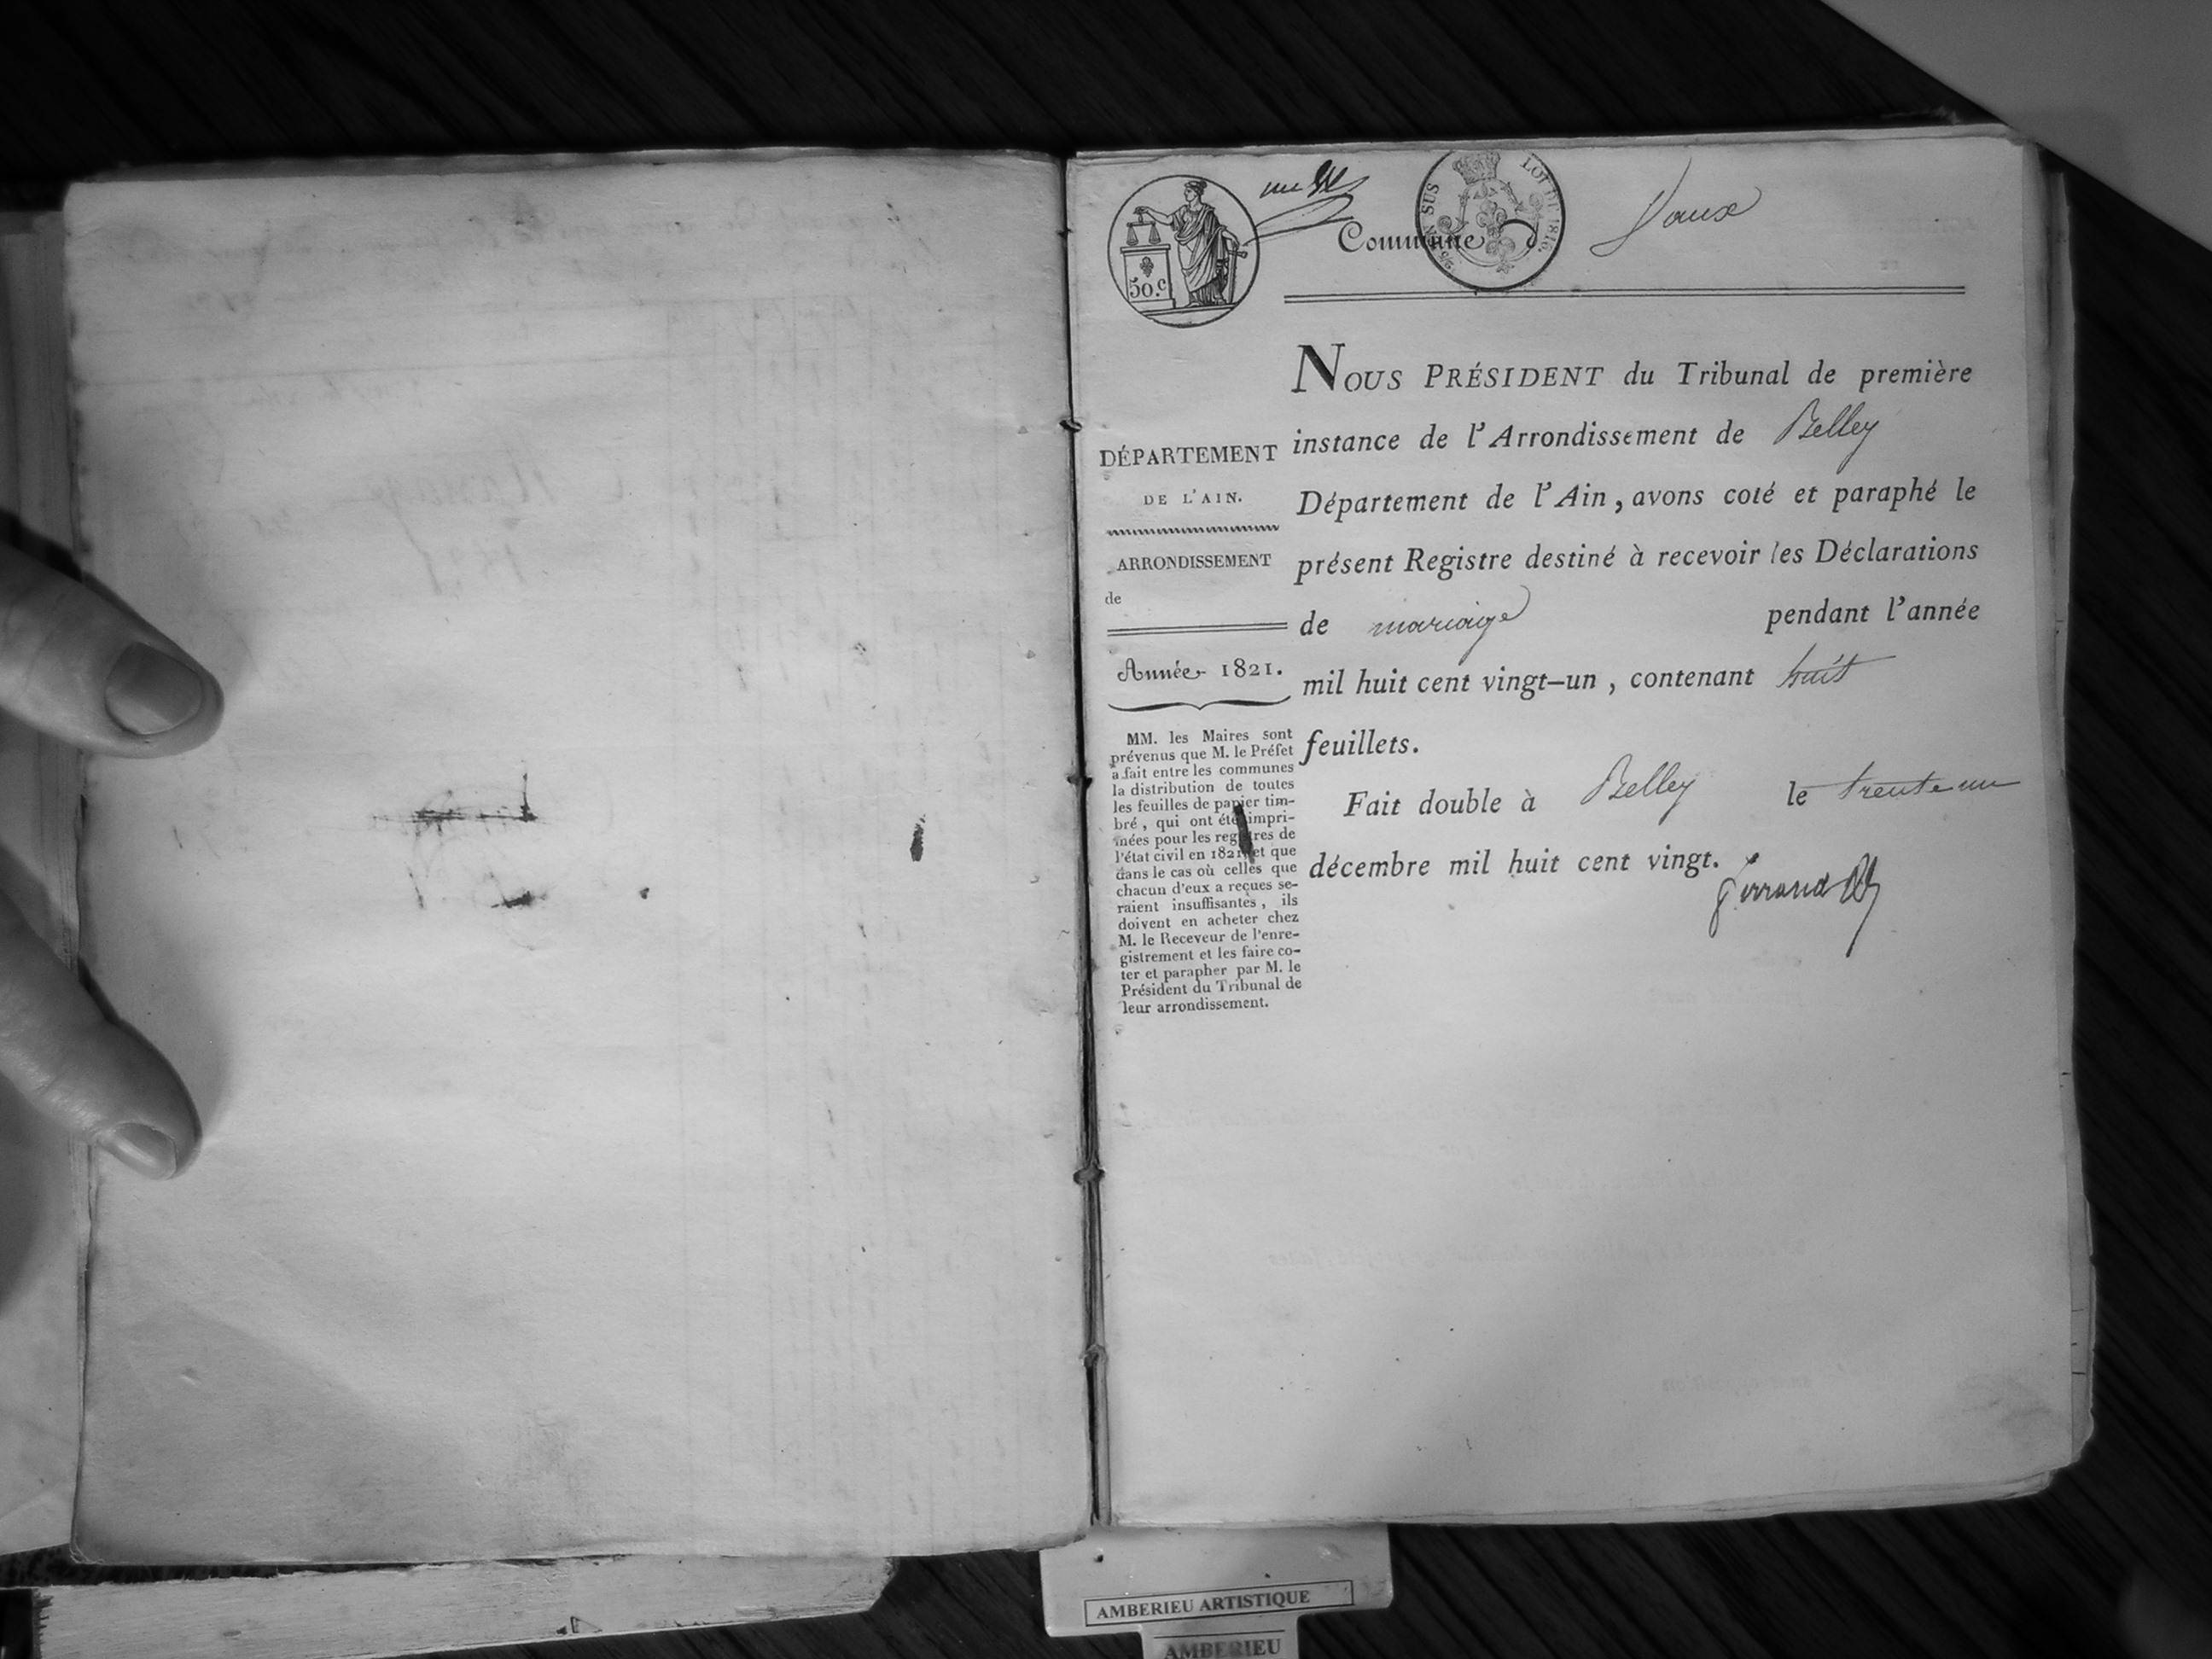 50.c
EN SUS
LOI DE 1816.
Commune d Vaux
NOUS PRÉSIDENT du Tribunal de première
instance de l'Arrondissement de Belley
Département de l'Ain, avons coté et paraphé le
présent Registre destiné à recevoir les Déclarations
de mariage pendant l'année
mil huit cent vingt-un, contenant huit
feuillets.
Fait double à Belley le trente un
décembre mil huit cent vingt.
DÉPARTEMENT
DE L'AIN.
ARRONDISSEMENT
de
Année 1821.
MM. les Maires sont
prévenus que M. le Préfet
a fait entre les communes
la distribution de toutes
les feuilles de papier tim-
bré, qui ont été impri-
mées pour les registres de
l'état civil en 1821, et que
dans le cas où celles que
chacun d'eux a reçues se-
raient insuffisantes, ils
doivent en acheter chez
M. le Receveur de l'enre-
gistrement et les faire co-
ter et parapher par M. le
Président du Tribunal de
leur arrondissement.
AMBERIEU ARTISTIQUE
AMBERIEU